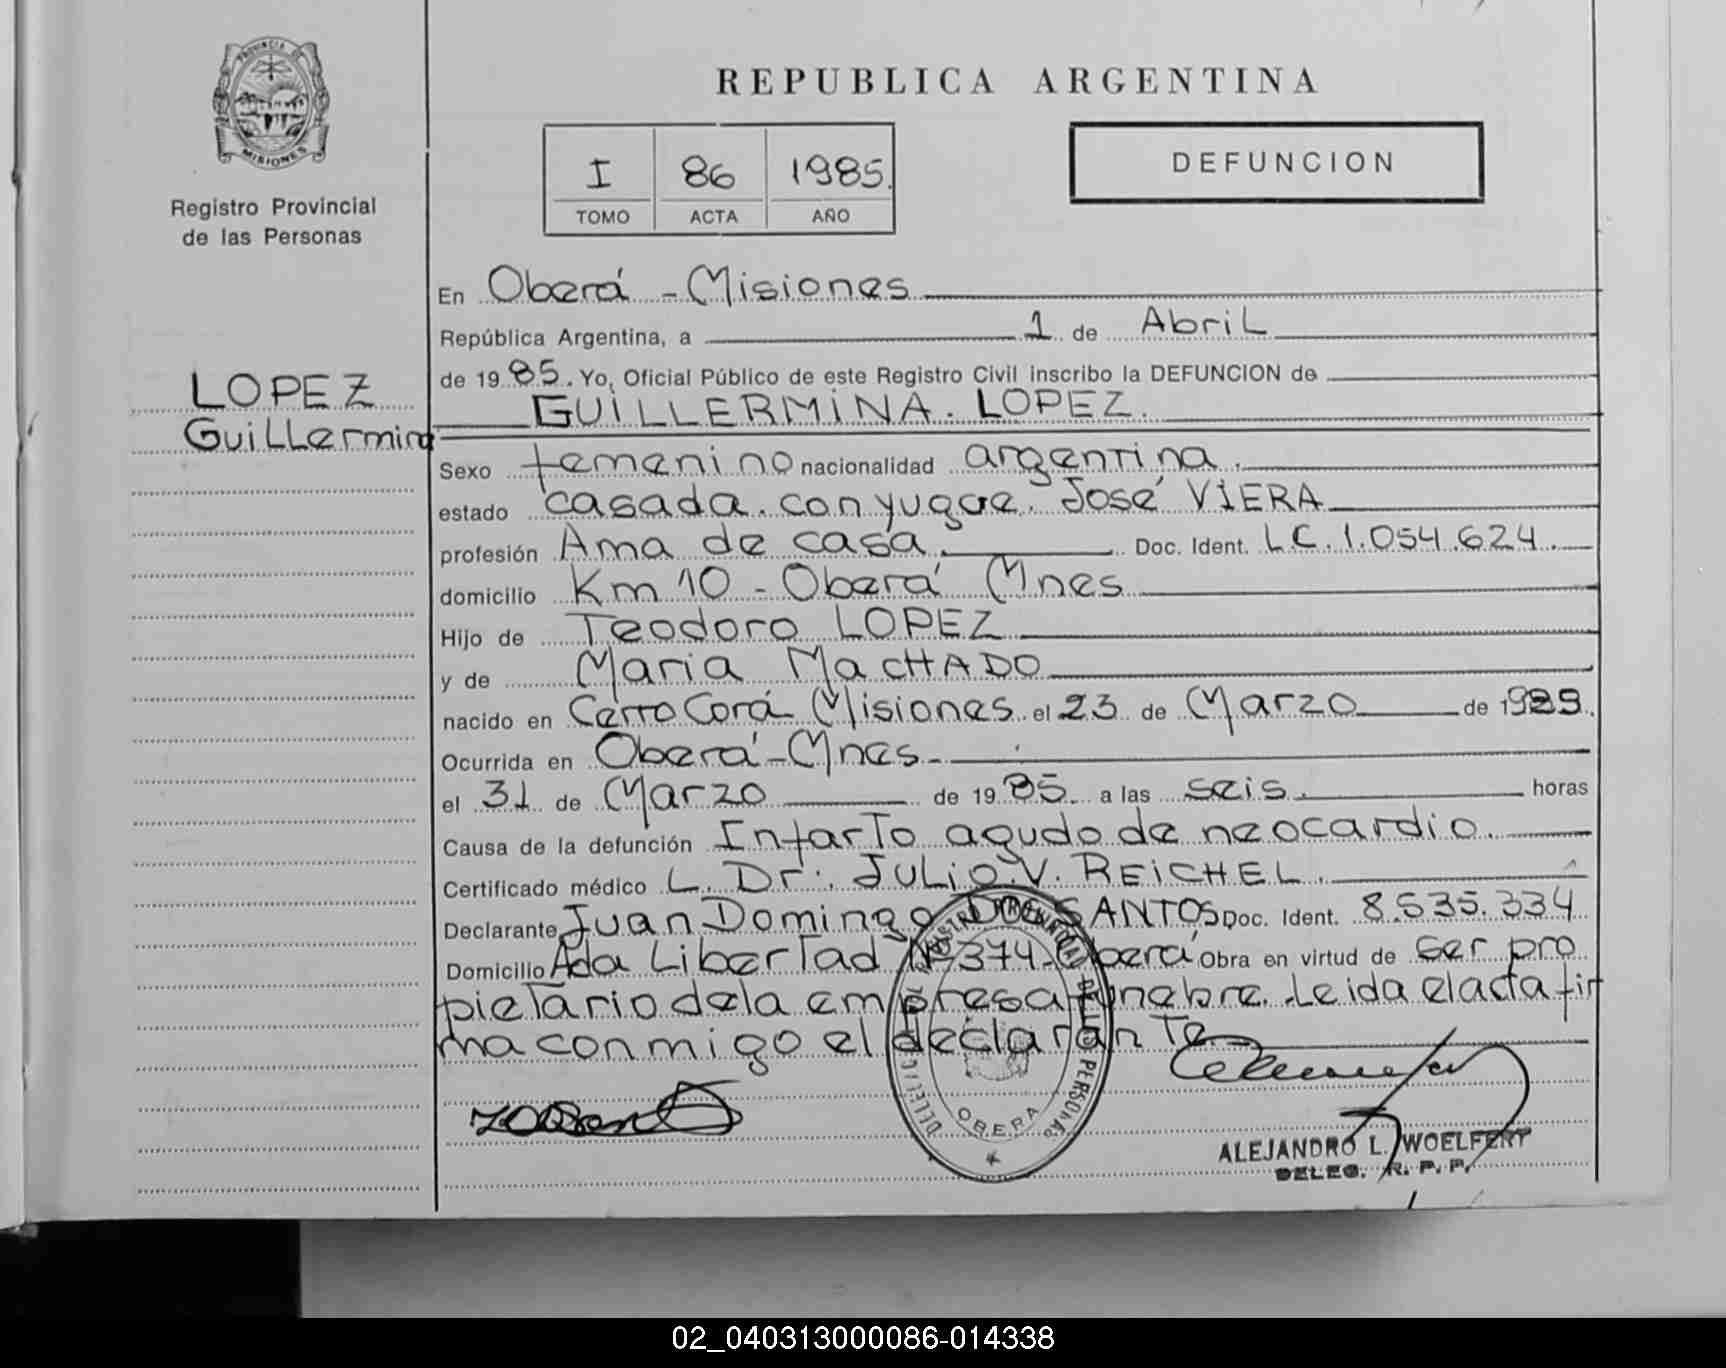 PROVINCIA DE
MISIONES
Registro Provincial
de las Personas
LOPEZ
Guillermina
REPUBLICA ARGENTINA
I 86 1985.
TOMO ACTA AÑO
DEFUNCION
En Oberá - Misiones
República Argentina, a 1 de Abril
de 1985. Yo, Oficial Público de este Registro Civil inscribo la DEFUNCION de
GUILLERMINA. LOPEZ.
Sexo femenino nacionalidad argentina.
estado casada. conyugue. José VIERA
profesión Ama de casa. Doc. Ident. L.C. 1.054.624.
domicilio Km 10 - Oberá Mnes
Hijo de Teodoro LOPEZ
y de Maria MacHADO
nacido en Cerro Corá Misiones el 23 de Marzo de
Ocurrida en Oberá - Mnes.
el 31 de Marzo de 1985. a las seis. horas
Causa de la defunción Infarto agudo de neocardio.
Certificado médico L. Dr. JULIO. V. REICHEL.
Declarante Juan Domingo DOS SANTOS Doc. Ident. 8.535.334
Domicilio Ada Libertad Nº 374 - Oberá Obra en virtud de ser pro
pietario de la empresa funebre. Leida el acta fir
ma conmigo el declarante
REGISTRO PROVINCIAL DE LAS PERSONAS
OBERA
ALEJANDRO L. WOELFERT
DELEG. R. P. P.
02_040313000086-014338